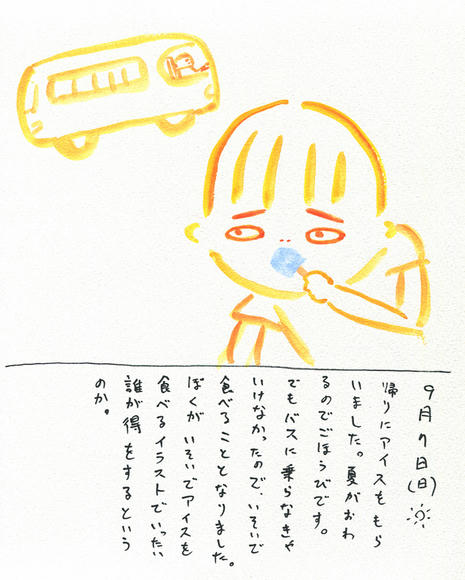 9月7日(日)
帰りにアイスをもら
いました。夏がおわ
るのでごほうびです。
でもバスに乗らなきゃ
いけなかったので、いそいで
食べることとなりました。
ぼくが いそいでアイスを
食べるイラストでいったい
誰が得をするという
のか。